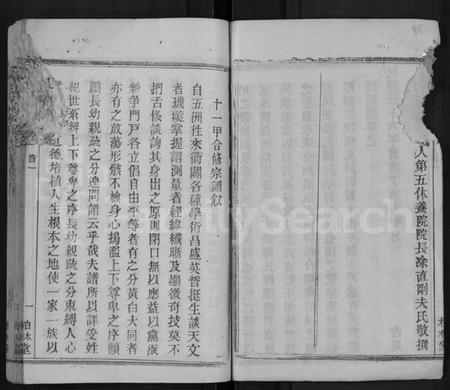 人第五休養院院長涂直剛夫氏敬撰
十一甲合修宗譜叙
自五洲往來衝闢各種學術昌盛英哲挺生談天文
者璣璇掌握謂測量者經緯纖晰及顯微奇技莫不
捫舌侈談詢其身出之原則閉口無以應益以黨派
紛爭門戶各立倡自由平等者有之分黃白大同者
亦有之放蕩形骸不檢身心搗濫上下尊卑之序顛
躓長幼親疏之分遑問譜云乎哉夫譜所以詳受姓
紀世系辨上下尊卑之序長幼親疏之分束縛人心
道德培植人生根本之地使一家一族以
首一
一
柏木堂
FamilySearch